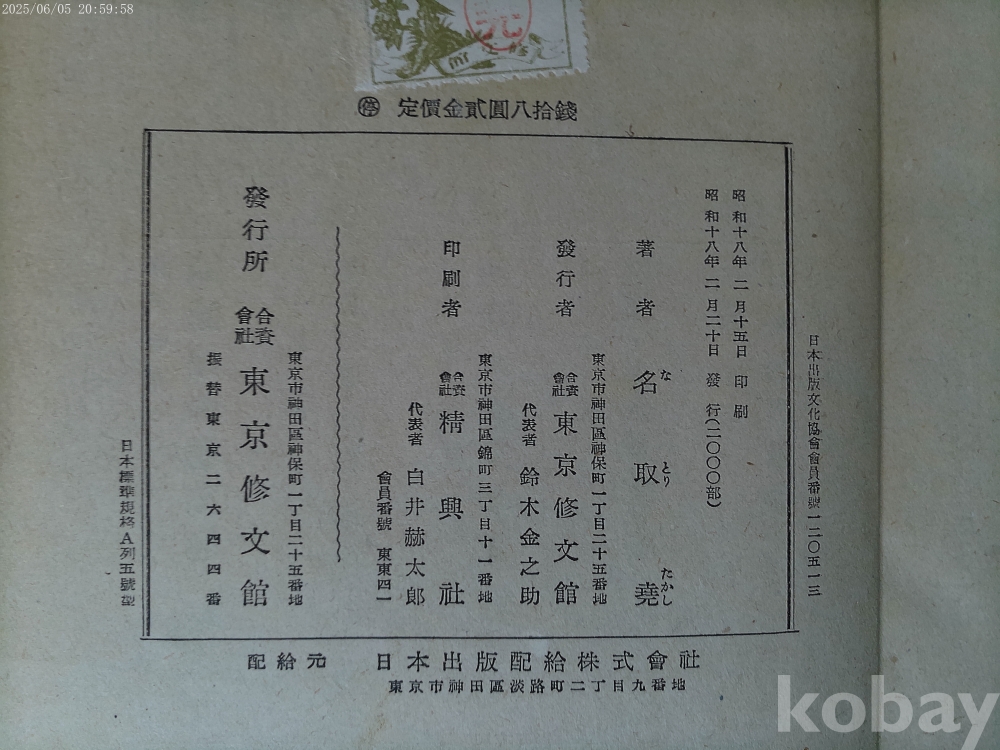 2025/06/05 20:59:58
㊡ 定價金貳圓八拾錢
日本出版文化協會會員番號一二〇五一三
昭和十八年二月十五日 印刷
昭和十八年二月二十日 發行(二〇〇〇部)
著者 名取堯
な とり たかし
東京市神田區神保町一丁目二十五番地
發行者 合資會社 東京修文館
代表者 鈴木金之助
東京市神田區錦町三丁目十一番地
印刷者 合資會社 精興社
代表者 白井赫太郎
會員番號 東東四一
東京市神田區神保町一丁目二十五番地
發行所 合資會社 東京修文館
振替東京二六四四番
日本標準規格A列五號型
配給元 日本出版配給株式會社
東京市神田區淡路町二丁目九番地
kobay